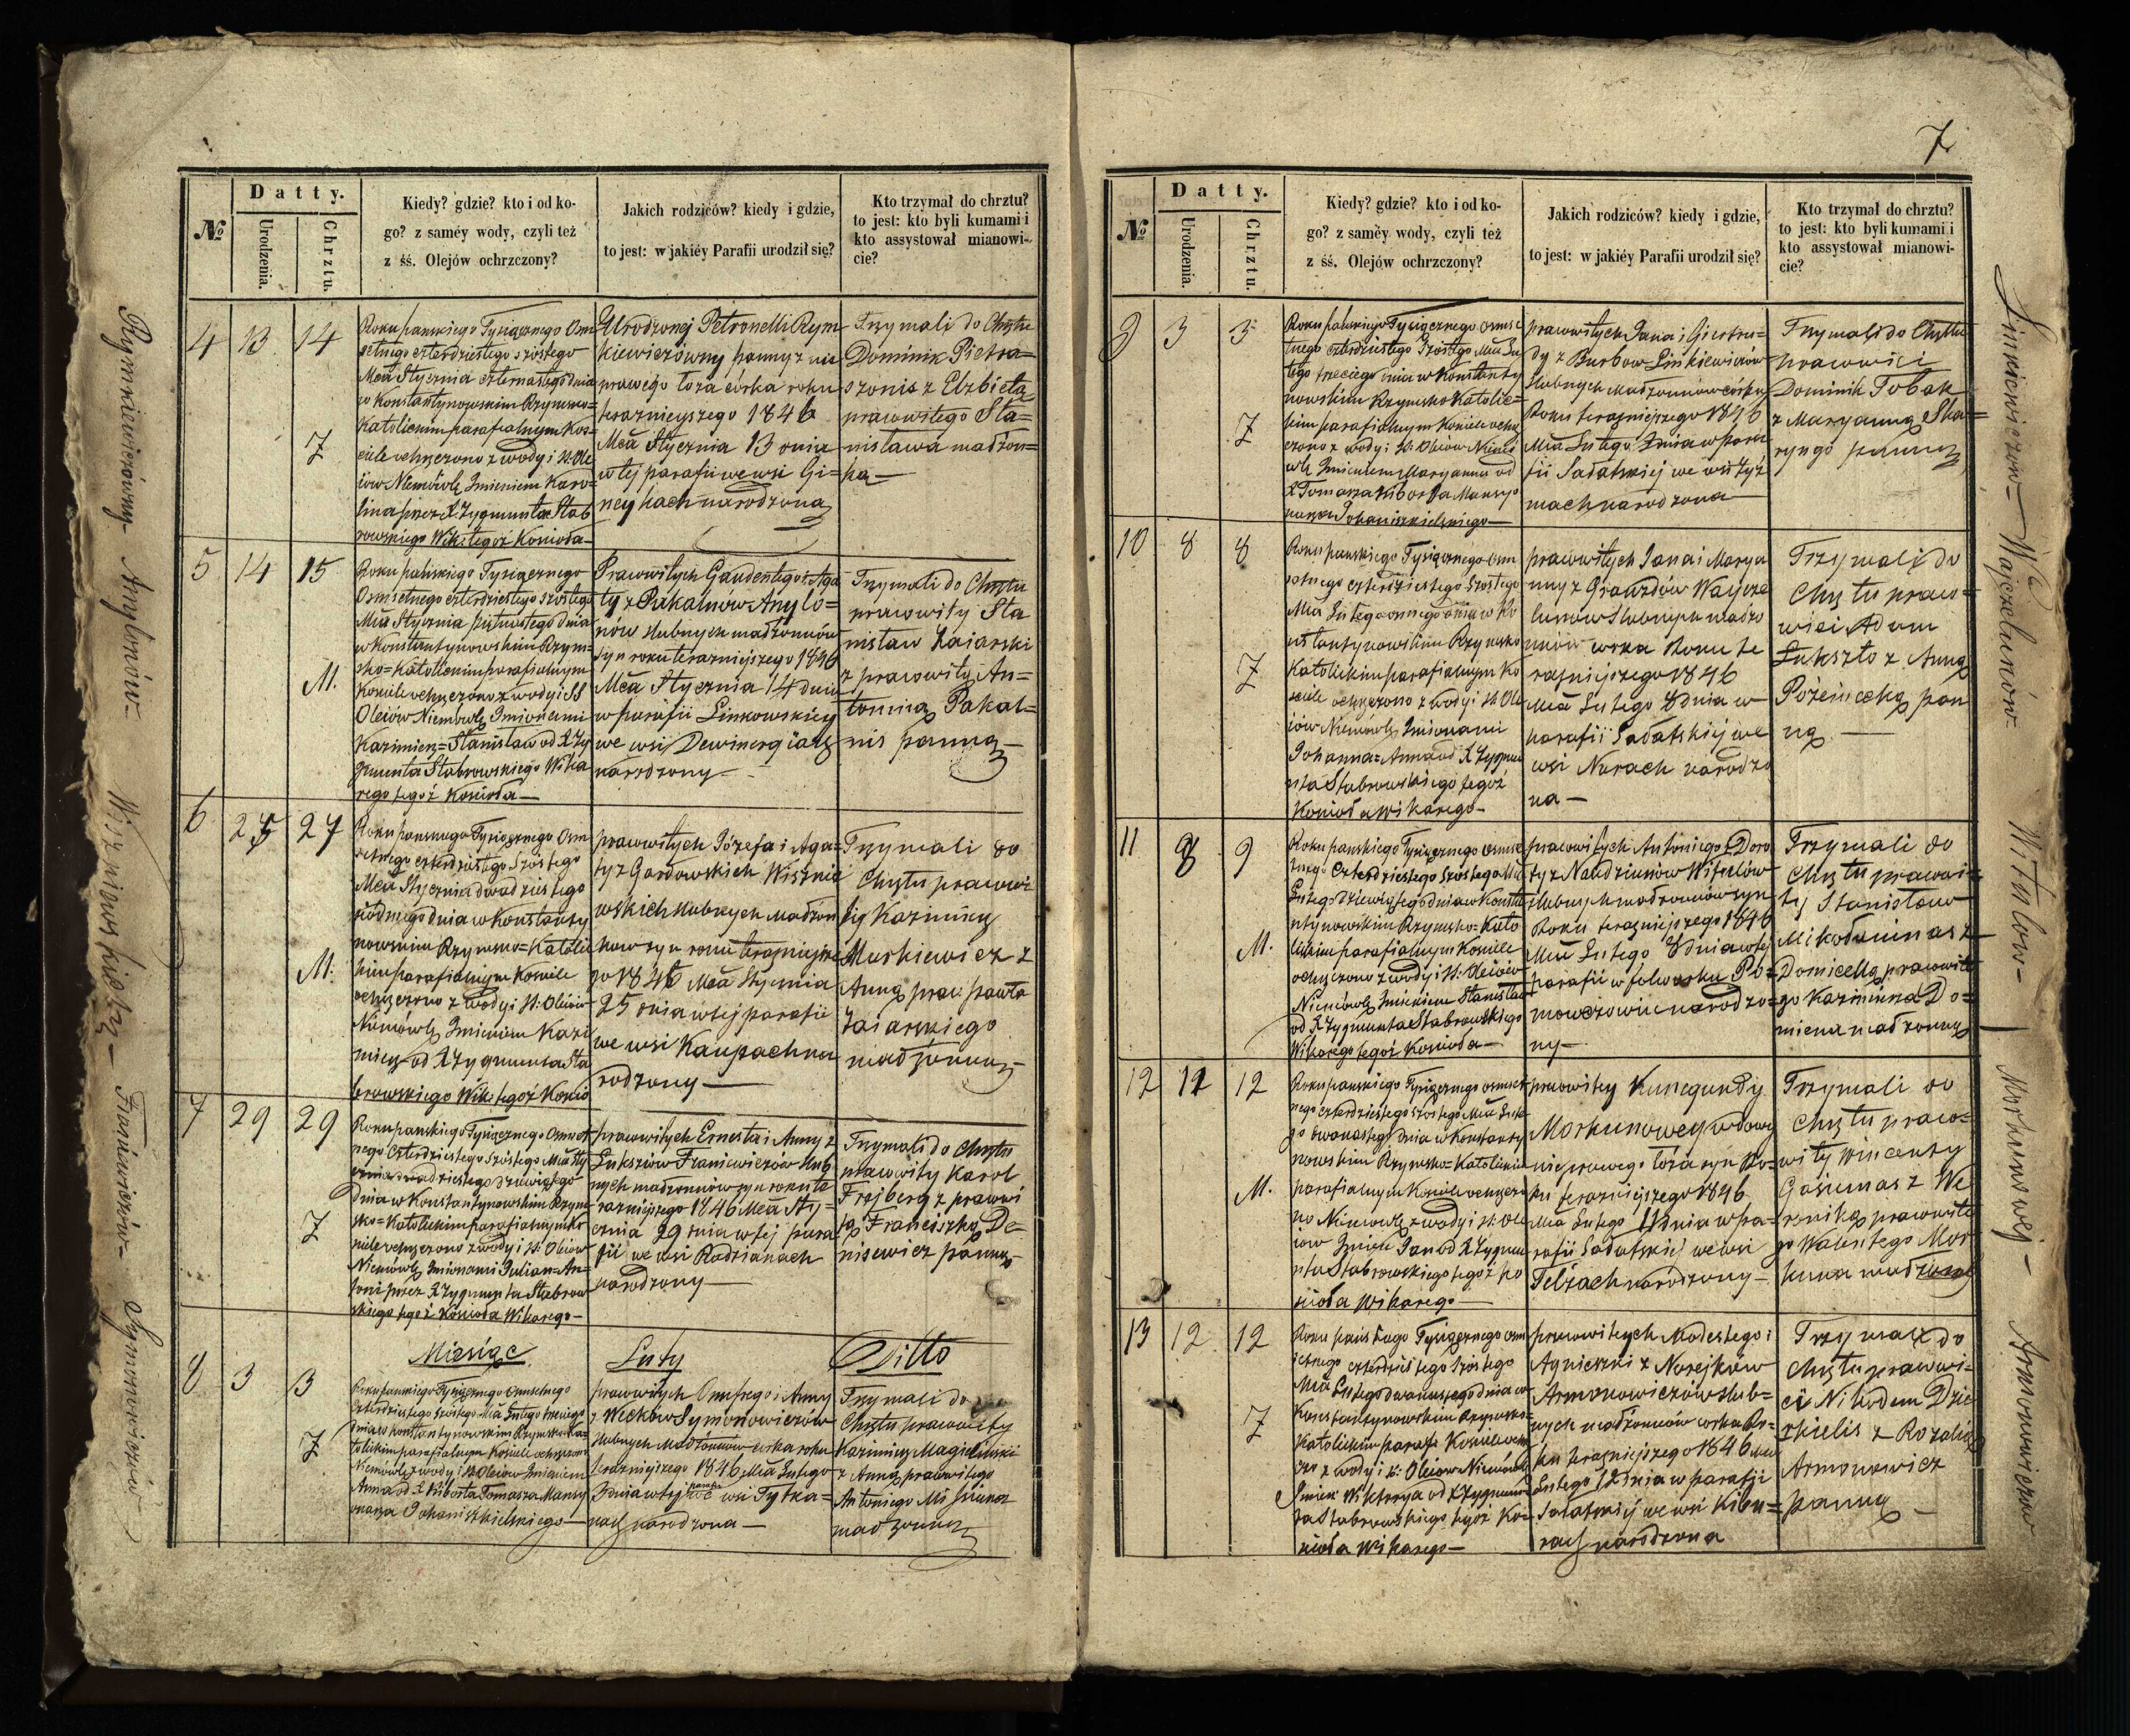 7
№
Datty.
Urodzenia.
Chrztu.
Kiedy? gdzie? kto i od ko-
go? z saméy wody, czyli też
z śś. Olejów ochrzczony?
Jakich rodziców? kiedy i gdzie,
to jest: w jakiéy Parafii urodził się?
Kto trzymał do chrztu?
to jest: kto byli kumami i
kto assystował mianowi-
cie?
4 13 14
Ż
Roku pańskiego Tysiącznego Osm
setnego czterdziestego szóstego
Mca Stycznia czternastego dnia
w Konstantynowskim Rzymsko=
Katolickim parafialnym Kos=
ciele ochrzczono z wody i SS. Ole
iów Niemowlę Imieniem Karo=
lina przez X Zygmunta Stab
rowskiego Wik: tegoż Kościoła
Urodzonej Petronelli Rym
kiewiczówny panny z nie
prawego łoża córka roku
terazniejszego 1846
Mca Stycznia 13 dnia
w tej parafii we wsi Gi=
neykach narodzona
Trzymali do Chrztu
Dominik Pietra=
szonis z Elżbietą
prawowitego Sta=
nisława małżon=
ką
5 14 15
M.
Roku pańskiego Tysiącznego
Osmsetnego czterdziestego szóstego
Mca Stycznia piętnastego dnia
w Konstantynowskim Rzym=
sko=Katolickim parafialnym
Kościele ochrzczono z wody i SS
Oleiów Niemowlę Imionami
Kazimierz=Stanisław od X Zy
gmunta Stabrowskiego Wika
rego tegoż Kościoła
Prawowitych Gaudentego i Aga
ty z Pakalnów Anylo=
nów slubnych małżonków
syn roku terazniejszego 1846
Mca Stycznia 14 dnia
w parafii Linkowskiey
we wsi
narodzony
Trzymali do Chrztu
prawowity Sta
nisław Zajarski
z prawowitą An=
toniną Pakal=
nis panną
6 25 27
M.
Roku pańskiego Tysiącznego Osm
setnego czterdziestego Szóstego
Mca Stycznia dwudziestego
siódmego dnia w Konstanty
nowskim Rzymsko=Katolic
kim parafialnym Kościele
ochrzczono z wody i SS: Oleiów
Niemowlę Imieniem Kazi
mierz od X Zygmunta Sta
browskiego Wik: tegoż Kościo
prawowitych Józefa i Aga=
ty z Gardowskich Wiszniе
wskich slubnych Małżon
kow syn roku terazniejsze
go 1846 Mca Stycznia
25 dnia w tej parafii
we wsi Kaupach na
rodzony
Trzymali do
Chrztu prawowi
Kazimierz
Markiewicz z
Anną praw: pawła
Zaiarskiego
małżonką
7 29 29
Ż
Roku pańskiego Tysiącznego Osmset
nego Czterdziestego Szóstego Mca Sty
cznia dwudziestego dziewiątego
dnia w Konstantynowskim Rzym
sko=Katolickim parafialnym Koś
ciele ochrzczono z wody i SS: Oleiów
Niemowlę Imionami Julian=An=
toni przez X Zygmunta Stabrow
skiego tegoż Kościoła Wikarego
prawowitych Ernesta i Anny z
Łukszów Franiewiczów slub
nych małżonków syn roku te
razniejszego 1846 Mca Sty=
cznia 29 dnia w tej para
fii we wsi Radzianach
narodzony
Trzymali do Chrztu
prawowity Karol
Frejberg z prawowi
tą Franciszką De=
nisewicz panną
Miesiąc Luty Ditto
8 3 3
Ż
Roku pańskiego Tysiącznego Osmsetnego
Czterdziestego Szóstego Mca Lutego trzeciego
dnia w Konstantynowskim Rzymsko=Ka=
tolickim parafialnym Kościele ochrzczono
Niemowlę z wody i SS Oleiów Imieniem
Anna od X Kiborta Tomasza Mansy
onarza Pohaniszkielskiego
prawowitych Onufrego i Anny
z Wećków Symonowiczów
slubnych Małżonków córka roku
terazniejszego 1846 Mca Lutego
3 dnia w tej parafii we wsi Tytka=
nach narodzona
Trzymali do
Chrztu prawowity
Kazimierz
z Anną prawowitego
Antoniego
małżonką
Rymkiewiczówny Anylonów Wiszniewskich Franiewiczów Symonowiczów
№
Datty.
Urodzenia.
Chrztu.
Kiedy? gdzie? kto i od ko-
go? z saméy wody, czyli też
z śś. Olejów ochrzczony?
Jakich rodziców? kiedy i gdzie,
to jest: w jakiéy Parafii urodził się?
Kto trzymał do chrztu?
to jest: kto byli kumami i
kto assystował mianowi-
cie?
9 3 3
Ż
Roku pańskiego Tysiącznego osmse
tnego czterdziestego Szóstego Mca Lu
tego trzeciego dnia w Konstanty
nowskim Rzymsko Katolic=
kim parafialnym Kościele ochrz
czono z wody i SS: Oleiów Niemo
wlę Imieniem Maryanna od
X Tomasza Kiborta Mansyo
narza Pohaniszkielskiego
prawowitych Jana i Giertru=
dy z Burbow Linkiewiczów
slubnych małżonków córka
Roku terazniejszego 1846
Mca Lutego 3 dnia w para
fii Sałatskiej we wsi
narodzona
Trzymali do Chrztu
prawowici
Dominik Tobak
z Maryanną Ska=
ryngo panną
10 8 8
Ż
Roku pańskiego Tysiącznego Osm
setnego czterdziestego Szóstego
Mca Lutego osmego dnia w Ko
nstantynowskim Rzymsko
Katolickim parafialnym Ko
sciele ochrzczono z wody i SS Ole
iów Niemowlę Imionami
Johanna=Anna od X Zygmu
nta Stabrowskiego tegoż
Kościoła Wikarego
prawowitych Jana i Marya
nny z Grauzdów Wajcze
lunow slubnych małżo
nków córka Roku te
raźniejszego 1846
Mca Lutego 8 dnia w
parafii Sałatskiej we
wsi Narach narodzo
na
Trzymali do
Chrztu prawo=
wici Adam
Łukszto z Anną
pan
ną
11 8 9
M.
Roku pańskiego Tysiącznego osmse
tnego Czterdziestego Szóstego Mca
Lutego dziewiątego dnia w Konsta
ntynowskim Rzymsko=Kato
lickim parafialnym Kościele
ochrzczono z wody i SS: Oleiów
Niemowlę Imieniem Stanisław
od X Zygmunta Stabrowskiego
Wikarego tegoż Kościoła
prawowitych Antoniego i Doro
ty z Naudziunów Witulow
slubnych małżonków syn
Roku terazniejszego 1846
Mca Lutego 8 dnia w tej
parafii w folwarku
narodzo=
ny
Trzymali do
Chrztu prawowi=
ty Stanisław
Mikołaiunas z
Domicellą prawowite
go Kazimierza Do=
miena małżonką
12 12 12
M.
Roku pańskiego Tysiącznego osmset
nego czterdziestego szóstego Mca Lute
go dwunastego dnia w Konstanty
nowskim Rzymsko=Katolickim
parafialnym Kościele ochrzczo
no Niemowlę z wody i SS: Ole
iow Imie: Jan od X Zygmu
nta Stabrowskiego tegoż Ko
ścioła Wikarego
prawowitey Kunegundy
Morkunowey wdowy
nieprawego łoża syn Ro=
ku terazniejszego 1846
Mca Lutego 11 dnia w pa=
rafii Sałatskiej we wsi
narodzony
Trzymali do
Chrztu prawo=
wity Wincenty
Gasiunas z We
roniką prawowite
go Walentego Mor
kuna małżonką
13 12 12
Ż
Roku pańskiego Tysiącznego osm
setnego czterdziestego szóstego
Mca Lutego dwunastego dnia w
Konstantynowskim Rzymsko=
Katolickim parafi Kościele ochrz
czo z wody i S: Oleiow Niemowlę
Imien: Wiktorya od X Zygmun=
ta Stabrowskiego tegoż Ko=
scioła Wikarego
prawowitych Modestego i
Agnieszki z Norejków
Armonowiczów slub=
nych małżonków córka Ro=
ku terazniejszego 1846 Mca
Lutego 12 dnia w parafji
Sałatskiej we wsi Kibu=
rach narodzona
Trzymali do
Chrztu prawowi=
ci Nikodem
z Rozalią
Armonowicz
panną
Linkiewiczow Wajczelunow Witulow Morkunowej Armonowiczow